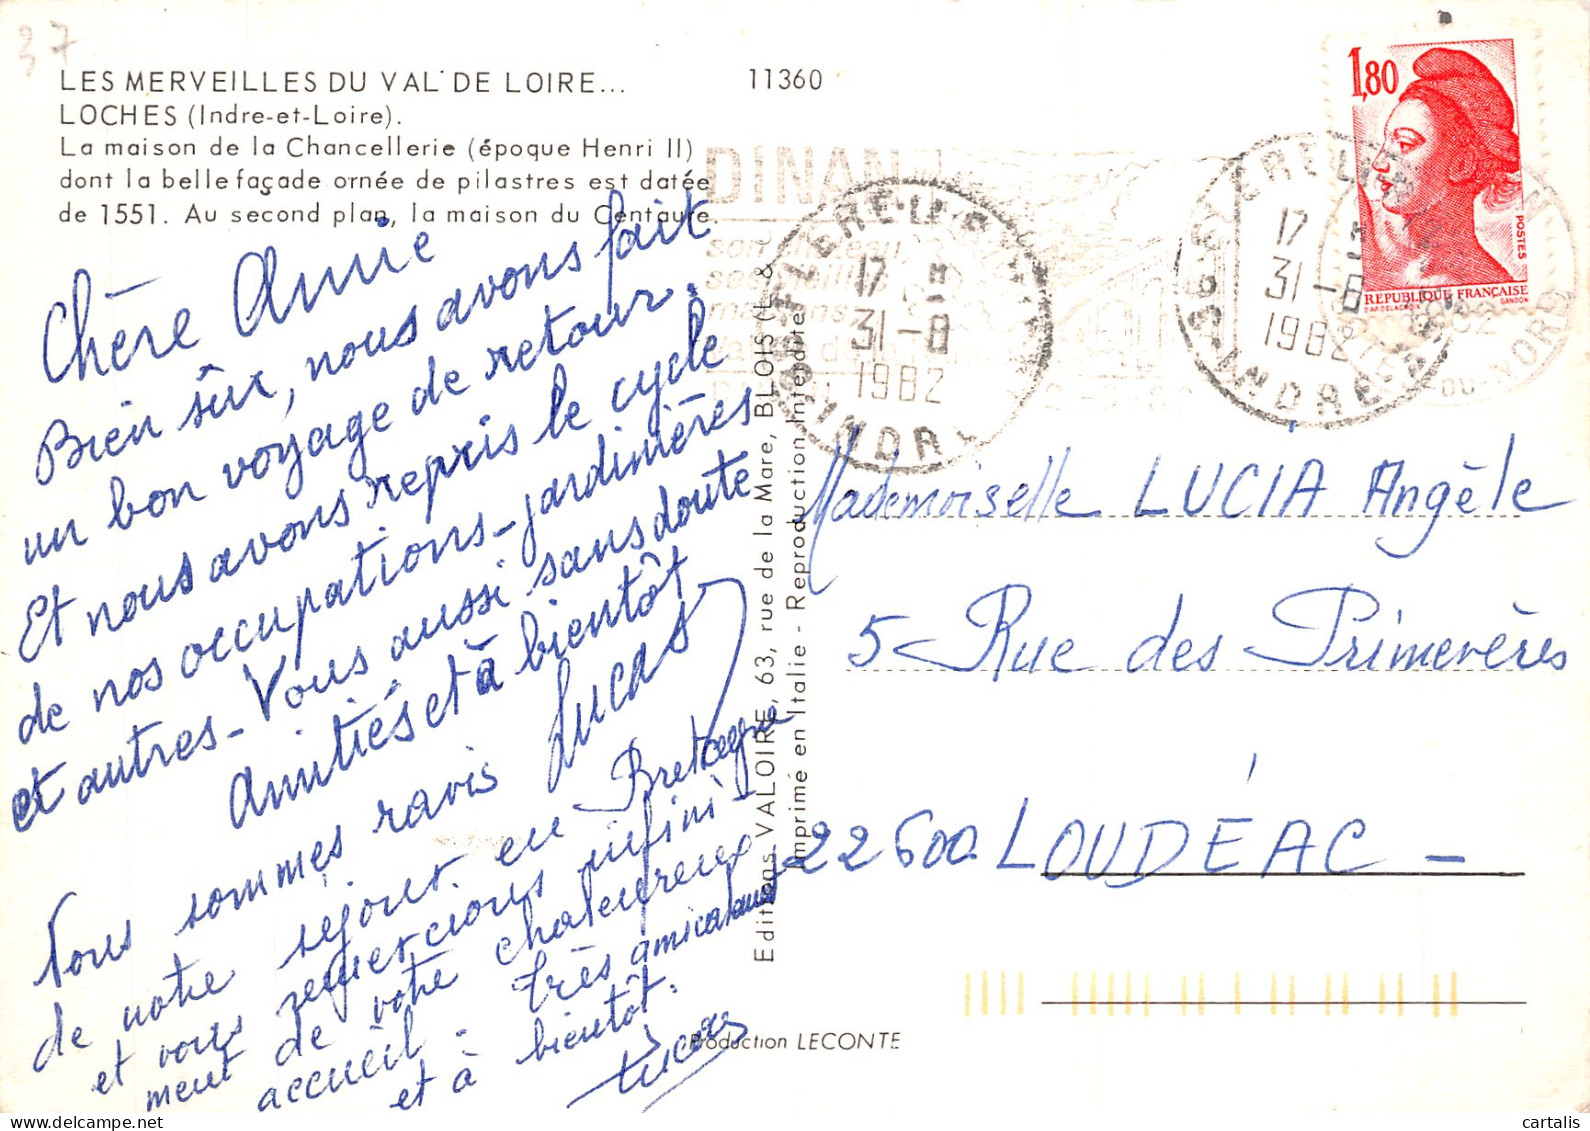 37
LES MERVEILLES DU VAL DE LOIRE...
11360
LOCHES (Indre-et-Loire).
La maison de la Chancellerie (époque Henri II)
dont la belle façade ornée de pilastres est datée
de 1551. Au second plan, la maison du Centaure.
Chère Annie
Bien sûr, nous avons fait
un bon voyage de retour.
Et nous avons repris le cycle
de nos occupations - jardinières
et autres - Vous aussi sans doute
Amitiés et à bientôt
Lucas
Nous sommes ravis
de notre séjour en Bretagne
et vous remercions infini-
ment de votre chaleureux
accueil. très amicalement
et à bientôt.
Lucas
Editions VALOIRE, 63, rue de la Mare, BLOIS (L. &
Imprimé en Italie - Reproduction Interdite
Production LECONTE
DINAN
17 H
31-8
1982
INDRE
1,80
REPUBLIQUE FRANÇAISE
POSTES
GANDON
D'AP. DELACROIX
17 H
31-8
1982
INDRE
DU-NORD
Mademoiselle LUCIA Angèle
5 Rue des Primevères
22600 LOUDÉAC -
cartalis